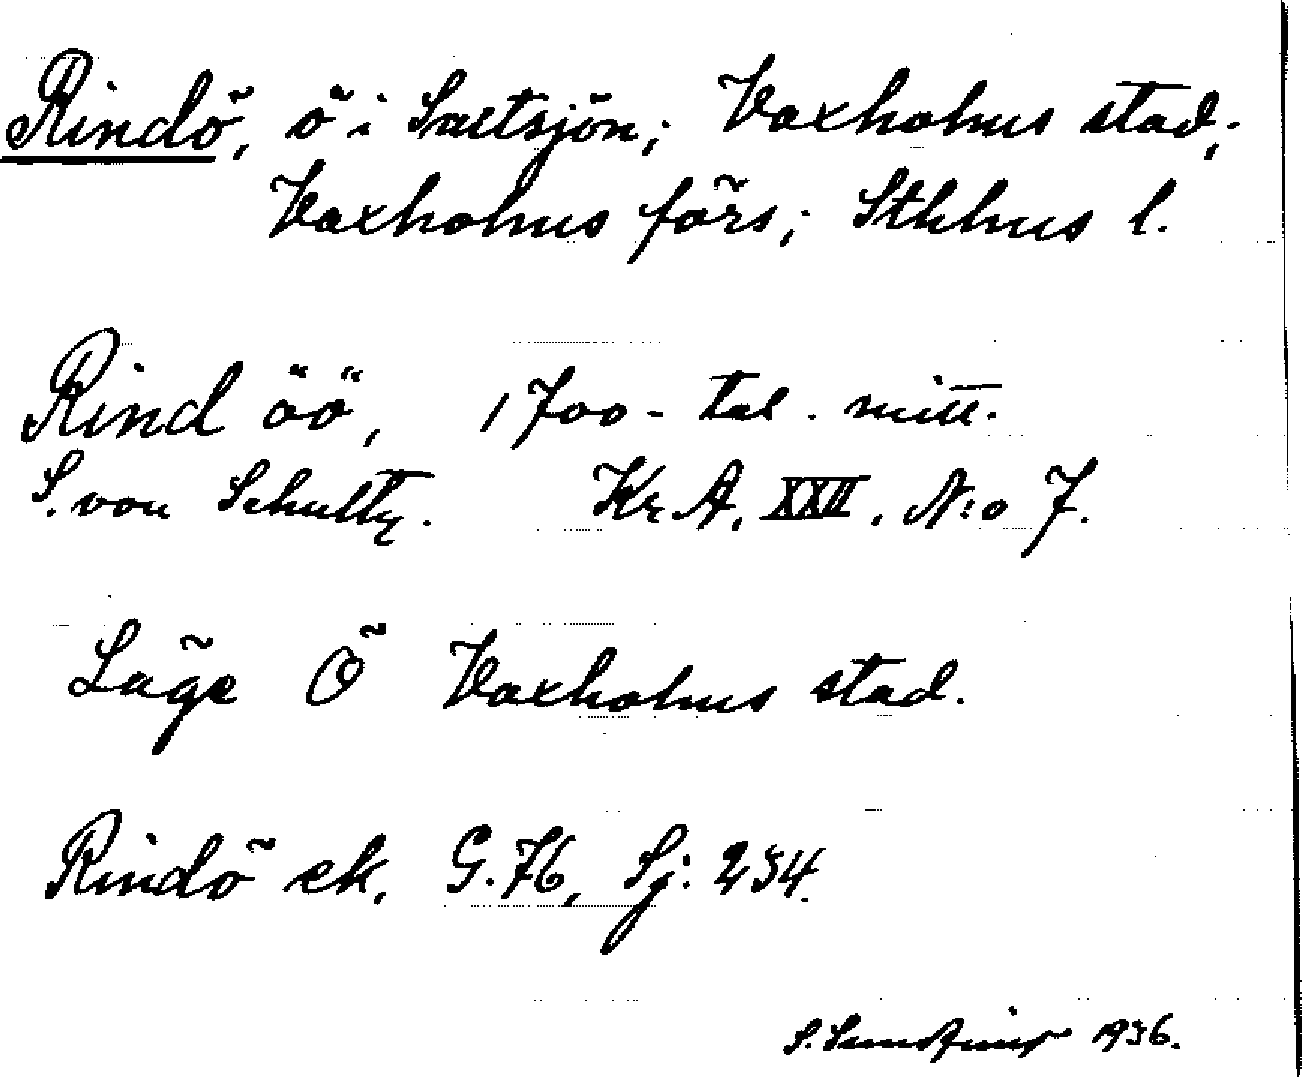 Rindö, ö i Saltsjön; Vaxholms stad;
Vaxholms förs; Sthlms l.
Rind öö, 1700-tal. mitt.
S. von Schultz. Kr A. XXII. N:o 7.
Läge Ö Vaxholms stad.
Rindö ek. G. 76, Sj: 234.
1936.